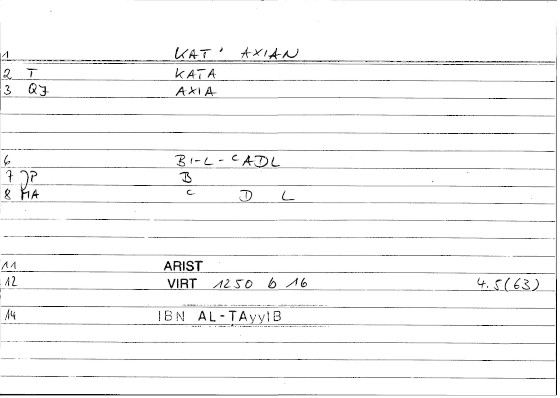 1 KAT' AXIAN
2 T KATA
3 QJ AXIA
6 BI-L-ᶜADL
7 JP B
8 MA ᶜ D L
11 ARIST
12 VIRT 1250 b 16 4.5(63)
14 IBN AL-TAyyIB